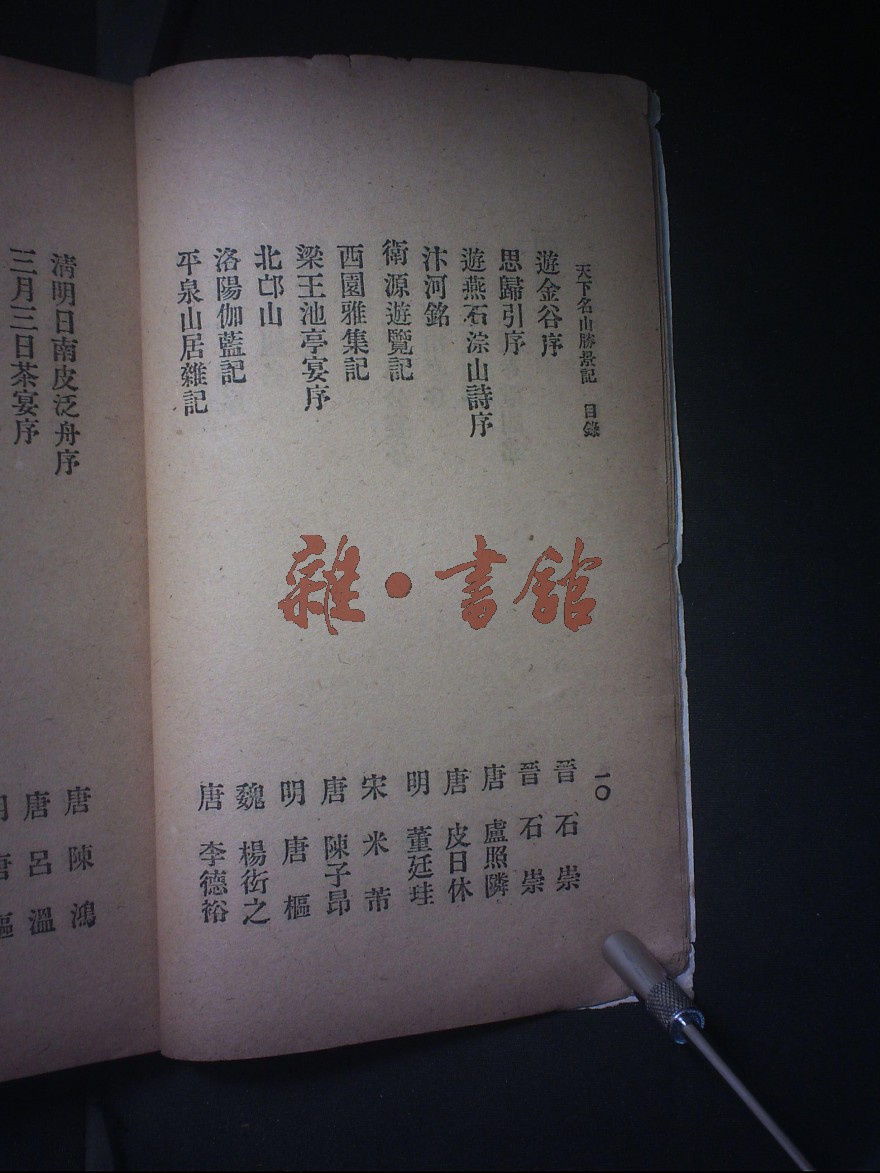 天下名山勝景記 目錄 一〇
遊金谷序 晉 石崇
思歸引序 晉 石崇
遊燕石淙山詩序 唐 盧照隣
汴河銘 唐 皮日休
衛源遊覽記 明 董廷珪
西園雅集記 宋 米芾
梁王池亭宴序 唐 陳子昂
北邙山 明 唐樞
洛陽伽藍記 魏 楊衒之
平泉山居雜記 唐 李德裕
清明日南皮泛舟序 唐 陳鴻
三月三日茶宴序 唐 呂溫
雜·書館